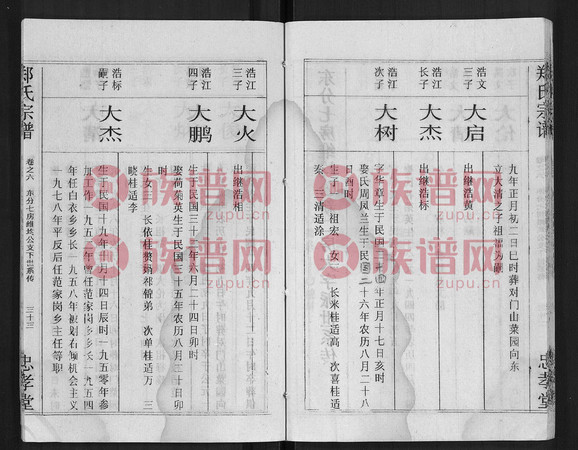 郑氏宗谱
九年正月初二日巳时葬对门山菜园向东
立大清之子祖郁为嗣
浩文
三子
大启
出继浩黄
浩江
长子
大杰
出继浩标
浩江
次子
大树
字华
生于民国二十
年正月十七日亥时
娶氏周凤兰生于民国二十六年农历八月二十八
日酉时
生子一祖宏
女三
长米桂适高
次喜桂适
秦
三清适涂
忠孝堂
浩江
三子
大火
出继浩相
浩江
四子
大鹏
生于民国三十二年六月二十四日卯时
娶荷菊英生于民国三十五年农历八月二十日卯
时
生女三
长依桂
次单桂适万
三
晓桂适李
浩标
嗣子
大杰
生于民国十九年
月十四日辰时一九五零年参
加工作一九五
年曾任范家岗乡乡长一九五四
年任白衣乡乡长一九五八年被划右倾机会主义
一九七八年平反后任范家岗乡主任等职
郑氏宗谱
卷之六
东分七房
公支下
系传
三十三
忠孝堂
族谱网
zupu.cn